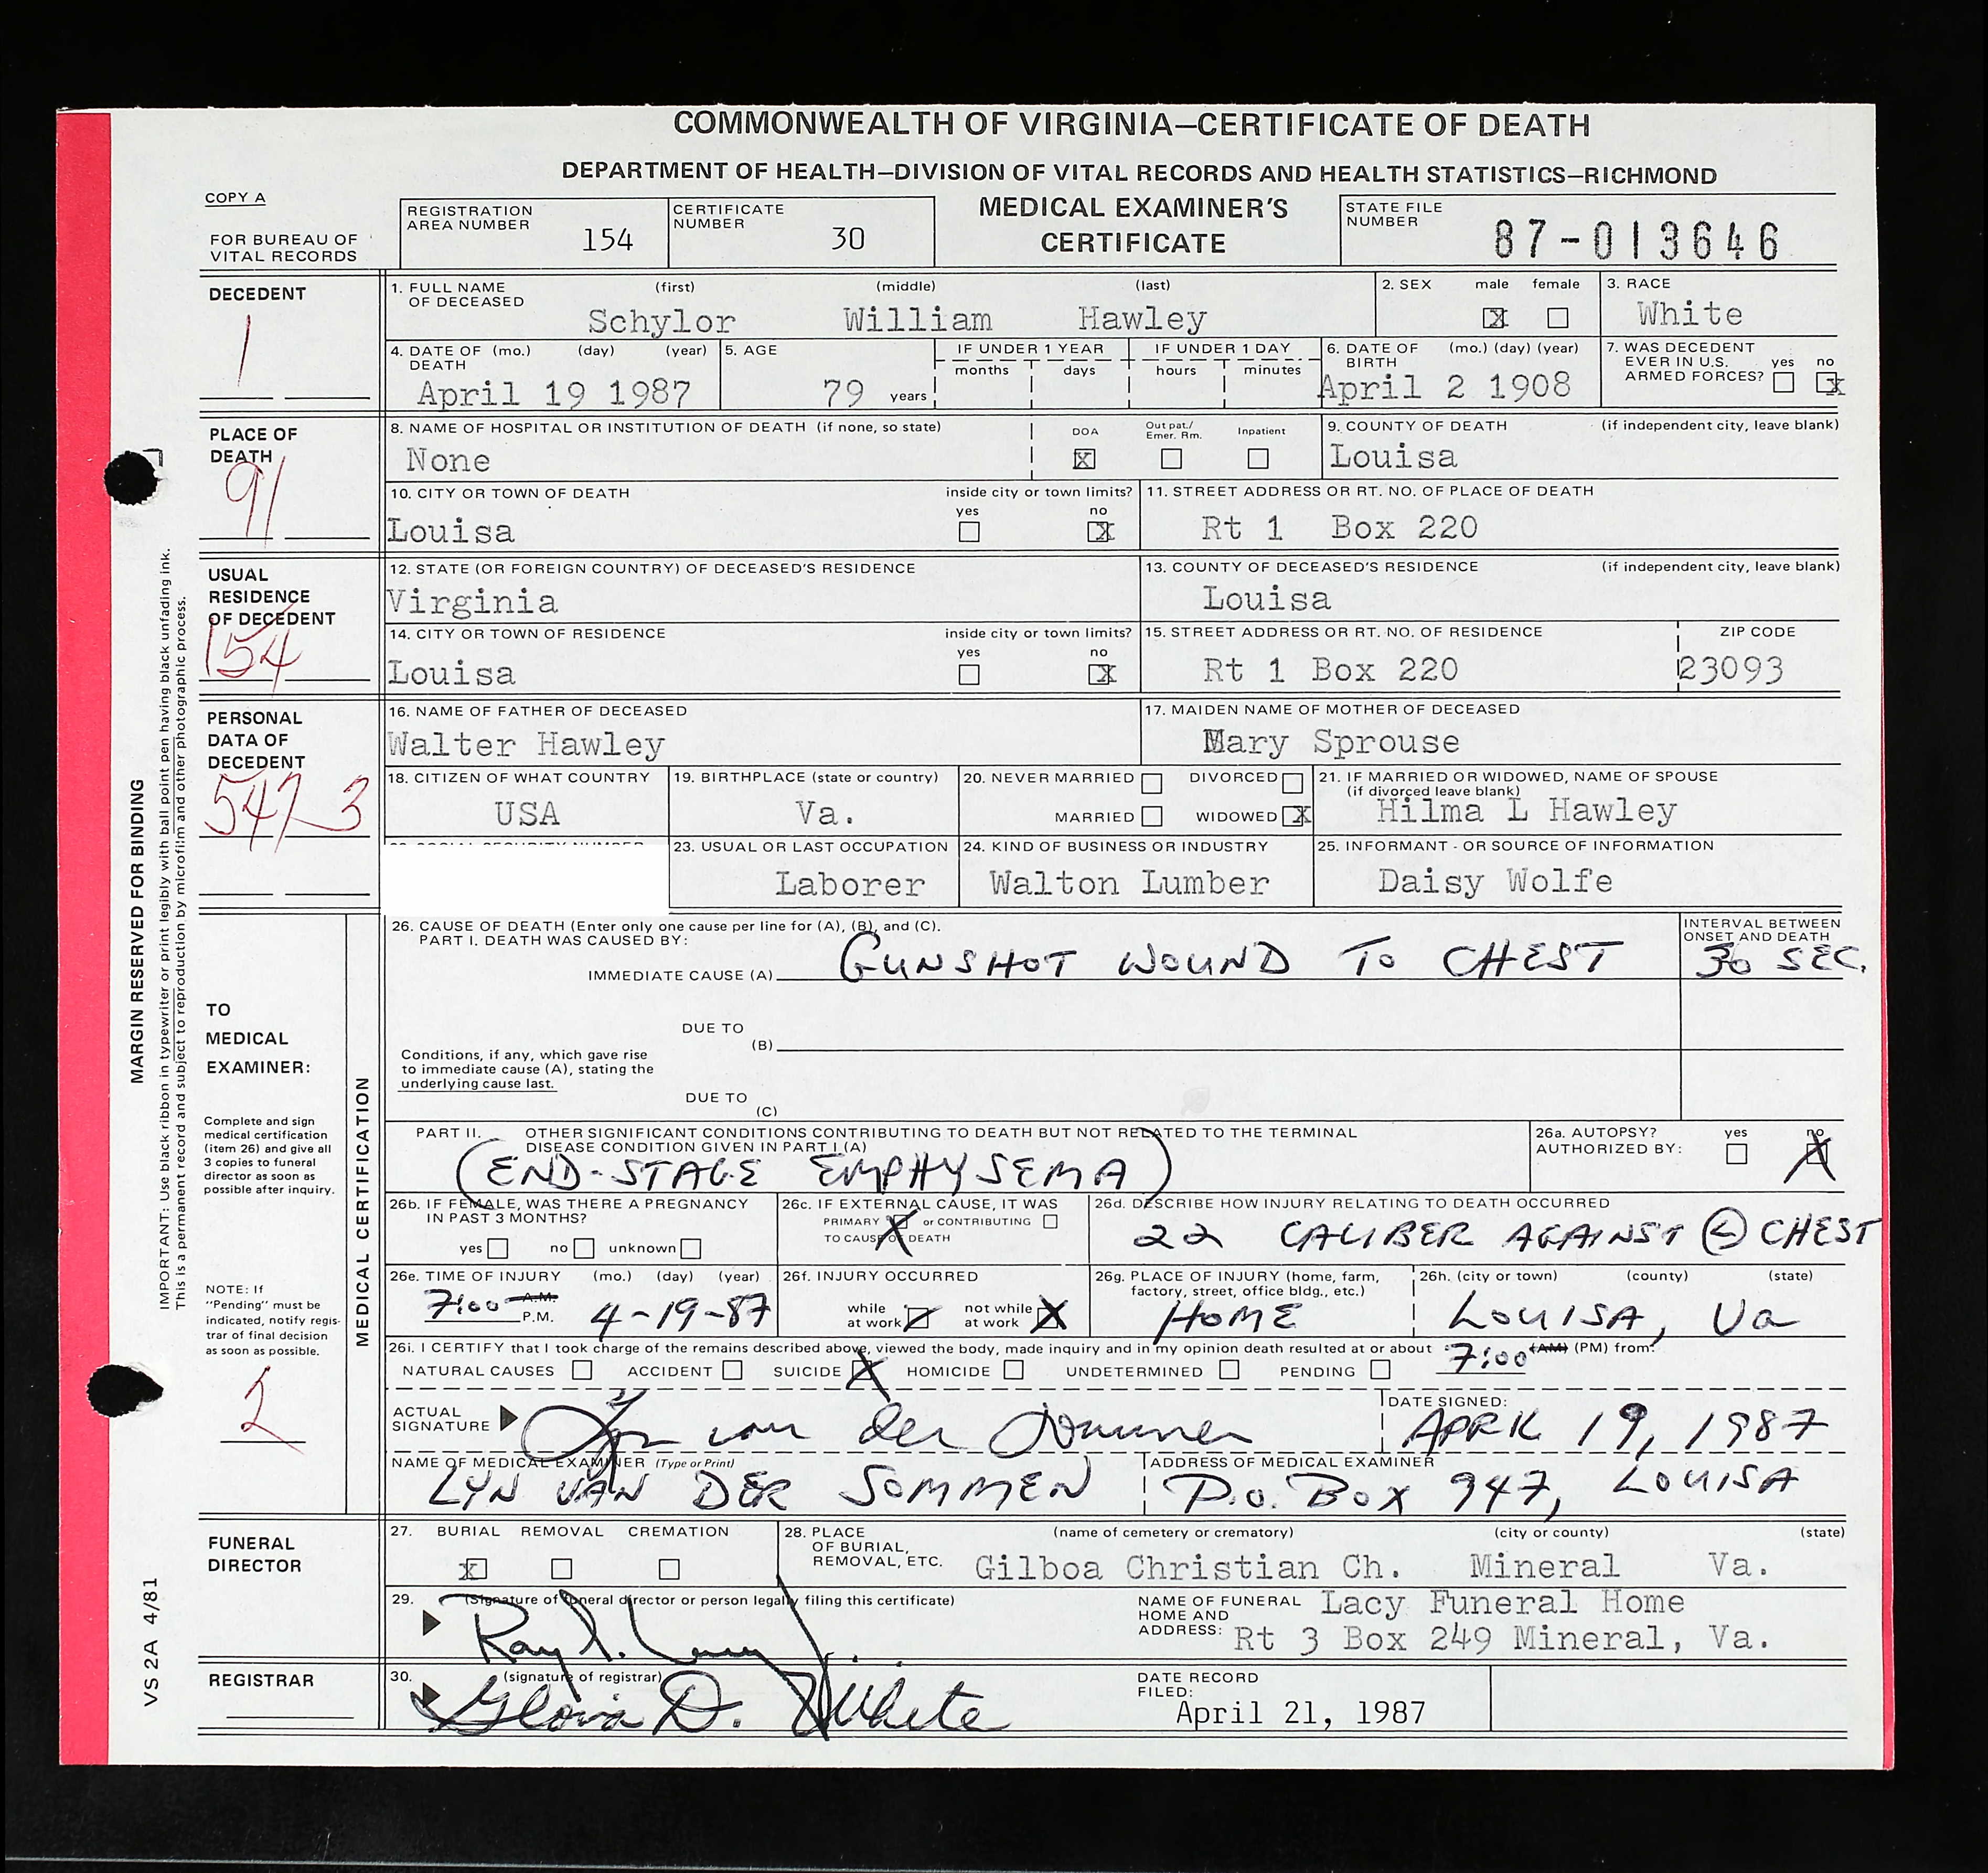 COMMONWEALTH OF VIRGINIA—CERTIFICATE OF DEATH
DEPARTMENT OF HEALTH—DIVISION OF VITAL RECORDS AND HEALTH STATISTICS—RICHMOND
COPY A
FOR BUREAU OF VITAL RECORDS
REGISTRATION AREA NUMBER 154
CERTIFICATE NUMBER 30
MEDICAL EXAMINER'S CERTIFICATE
STATE FILE NUMBER 87-013646
DECEDENT
1
1. FULL NAME OF DECEASED (first) (middle) (last)
Schylor William Hawley
2. SEX male female
X
3. RACE
White
4. DATE OF DEATH (mo.) (day) (year)
April 19 1987
5. AGE
79 years
IF UNDER 1 YEAR
months days
IF UNDER 1 DAY
hours minutes
6. DATE OF BIRTH (mo.) (day) (year)
April 2 1908
7. WAS DECEDENT EVER IN U.S. ARMED FORCES? yes no
x
PLACE OF DEATH
91
8. NAME OF HOSPITAL OR INSTITUTION OF DEATH (if none, so state)
None
DOA Out pat./ Emer. Rm. Inpatient
X
9. COUNTY OF DEATH (if independent city, leave blank)
Louisa
10. CITY OR TOWN OF DEATH
Louisa
inside city or town limits?
yes no
X
11. STREET ADDRESS OR RT. NO. OF PLACE OF DEATH
Rt 1 Box 220
USUAL RESIDENCE OF DECEDENT
154
12. STATE (OR FOREIGN COUNTRY) OF DECEASED'S RESIDENCE
Virginia
13. COUNTY OF DECEASED'S RESIDENCE (if independent city, leave blank)
Louisa
14. CITY OR TOWN OF RESIDENCE
Louisa
inside city or town limits?
yes no
X
15. STREET ADDRESS OR RT. NO. OF RESIDENCE
Rt 1 Box 220
ZIP CODE
23093
PERSONAL DATA OF DECEDENT
3
16. NAME OF FATHER OF DECEASED
Walter Hawley
17. MAIDEN NAME OF MOTHER OF DECEASED
Mary Sprouse
18. CITIZEN OF WHAT COUNTRY
USA
19. BIRTHPLACE (state or country)
Va.
20. NEVER MARRIED DIVORCED
MARRIED WIDOWED X
21. IF MARRIED OR WIDOWED, NAME OF SPOUSE
(if divorced leave blank)
Hilma L Hawley
23. USUAL OR LAST OCCUPATION
Laborer
24. KIND OF BUSINESS OR INDUSTRY
Walton Lumber
25. INFORMANT - OR SOURCE OF INFORMATION
Daisy Wolfe
MARGIN RESERVED FOR BINDING
IMPORTANT: Use black ribbon in typewriter or print legibly with ball point pen having black unfading ink.
This is a permanent record and subject to reproduction by microfilm and other photographic process.
TO MEDICAL EXAMINER:
Complete and sign
medical certification
(item 26) and give all
3 copies to funeral
director as soon as
possible after inquiry.
NOTE: If
"Pending" must be
indicated, notify regis-
trar of final decision
as soon as possible.
2
MEDICAL CERTIFICATION
26. CAUSE OF DEATH (Enter only one cause per line for (A), (B), and (C).
PART I. DEATH WAS CAUSED BY:
IMMEDIATE CAUSE (A) GUNSHOT WOUND TO CHEST
INTERVAL BETWEEN ONSET AND DEATH
30 SEC.
DUE TO
(B)
Conditions, if any, which gave rise
to immediate cause (A), stating the
underlying cause last.
DUE TO
(C)
PART II. OTHER SIGNIFICANT CONDITIONS CONTRIBUTING TO DEATH BUT NOT RELATED TO THE TERMINAL
DISEASE CONDITION GIVEN IN PART I (A)
(END-STAGE EMPHYSEMA)
26a. AUTOPSY?
AUTHORIZED BY: yes no
X
26b. IF FEMALE, WAS THERE A PREGNANCY
IN PAST 3 MONTHS?
yes no unknown
26c. IF EXTERNAL CAUSE, IT WAS
PRIMARY X or CONTRIBUTING
TO CAUSE OF DEATH
26d. DESCRIBE HOW INJURY RELATING TO DEATH OCCURRED
22 CALIBER AGAINST Ⓛ CHEST
26e. TIME OF INJURY (mo.) (day) (year)
7:00 A.M. P.M. 4-19-87
26f. INJURY OCCURRED
while at work not while at work X
26g. PLACE OF INJURY (home, farm,
factory, street, office bldg., etc.)
HOME
26h. (city or town) (county) (state)
LOUISA, Va
26i. I CERTIFY that I took charge of the remains described above, viewed the body, made inquiry and in my opinion death resulted at or about 7:00 (AM) (PM) from:
NATURAL CAUSES ACCIDENT SUICIDE X HOMICIDE UNDETERMINED PENDING
ACTUAL SIGNATURE Lyn van der Sommen
DATE SIGNED:
APRIL 19, 1987
NAME OF MEDICAL EXAMINER (Type or Print)
LYN VAN DER SOMMEN
ADDRESS OF MEDICAL EXAMINER
P.O. BOX 947, LOUISA
FUNERAL DIRECTOR
27. BURIAL REMOVAL CREMATION
x
28. PLACE OF BURIAL, REMOVAL, ETC. (name of cemetery or crematory) (city or county) (state)
Gilboa Christian Ch. Mineral Va.
29. (Signature of funeral director or person legally filing this certificate)
NAME OF FUNERAL HOME AND ADDRESS:
Lacy Funeral Home
Rt 3 Box 249 Mineral, Va.
REGISTRAR
30. (signature of registrar)
Gloria D. White
DATE RECORD FILED:
April 21, 1987
VS 2A 4/81